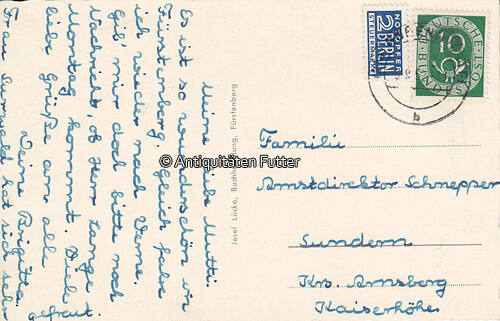 Meine liebe Mutti.
Es ist so wunderschön in
Fürstenberg. Gleich fahre
ich wieder nach Verne.
Gib' mir doch bitte noch
Nachricht, ob Herr Lange
Montag kommt. Viele
liebe Grüße an alle
Deine Brigitte.
Frau hat sich sehr
gefreut.
Josef Lücke, Buchhandlung, Fürstenberg
© Antiquitäten Futter
NOTOPFER
2 BERLIN
STEUERMARKE
DEUTSCHE
BUNDESPOST
10
b
Familie
Amtsdirektor Schnepper
Sundern
Krs. Arnsberg
Kaiserhöhe